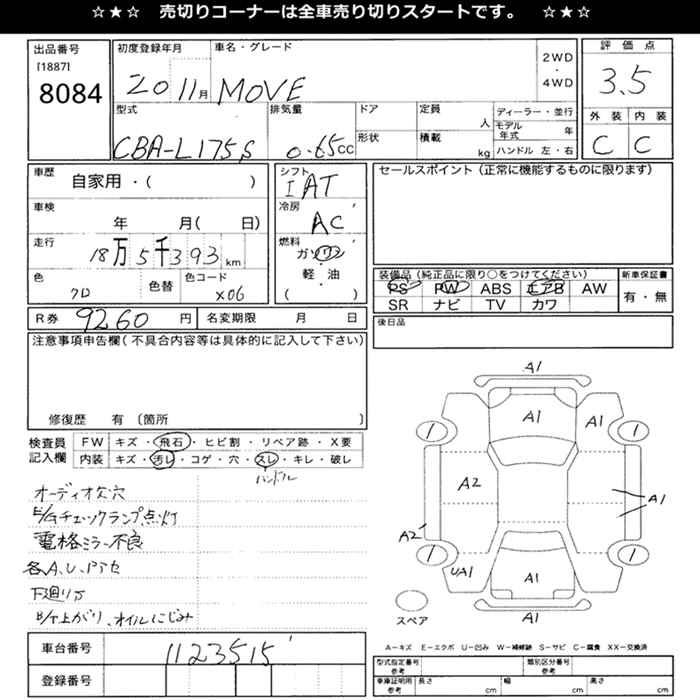 ☆★☆ 売切りコーナーは全車売り切りスタートです。 ☆★☆
出品番号
[1887]
8084
初度登録年月
20 11月
車名・グレード
MOVE
2WD
・
4WD
評価点
3.5
外装 内装
C C
型式
CBA-L175S
排気量
0.65CC
ドア
形状
定員
人
積載
kg
ディーラー・並行
モデル年式 年
ハンドル 左・右
車歴
自家用・( )
車検
年 月( 日)
走行
18万5千393km
色
クロ
色替
色コード
X06
シフト
IAT
冷房
AC
燃料
ガソリン
・
軽・油
( )
セールスポイント(正常に機能するものに限ります)
装備品(純正品に限り○をつけてください)
PS PW ABS エアB AW
SR ナビ TV カワ
新車保証書
有・無
R券
9260円
名変期限 月 日
後日品
注意事項申告欄(不具合内容等は具体的に記入して下さい)
修復歴 有 〔箇所
検査員
記入欄
FW キズ・飛石・ヒビ割・リペア跡・X要
内装 キズ・汚レ・コゲ・穴・スレ・キレ・破レ
ハンドル
オーディオ欠穴
E/Gチェックランプ点灯
電格ミラー不良
各A,U,
下廻りサ
オイルにじみ
車台番号
1123515
登録番号
A1
A1
A1
1
1
A2
A1
A2
1
1
UA1
A1
A1
スペア
A-キズ E-エクボ U-凹み W-補修跡 S-サビ C-腐食 XX-交換済
型式指定番号
参考
類別区分番号
参考
車庫証明用
参考
長さ cm
幅 cm
高さ cm